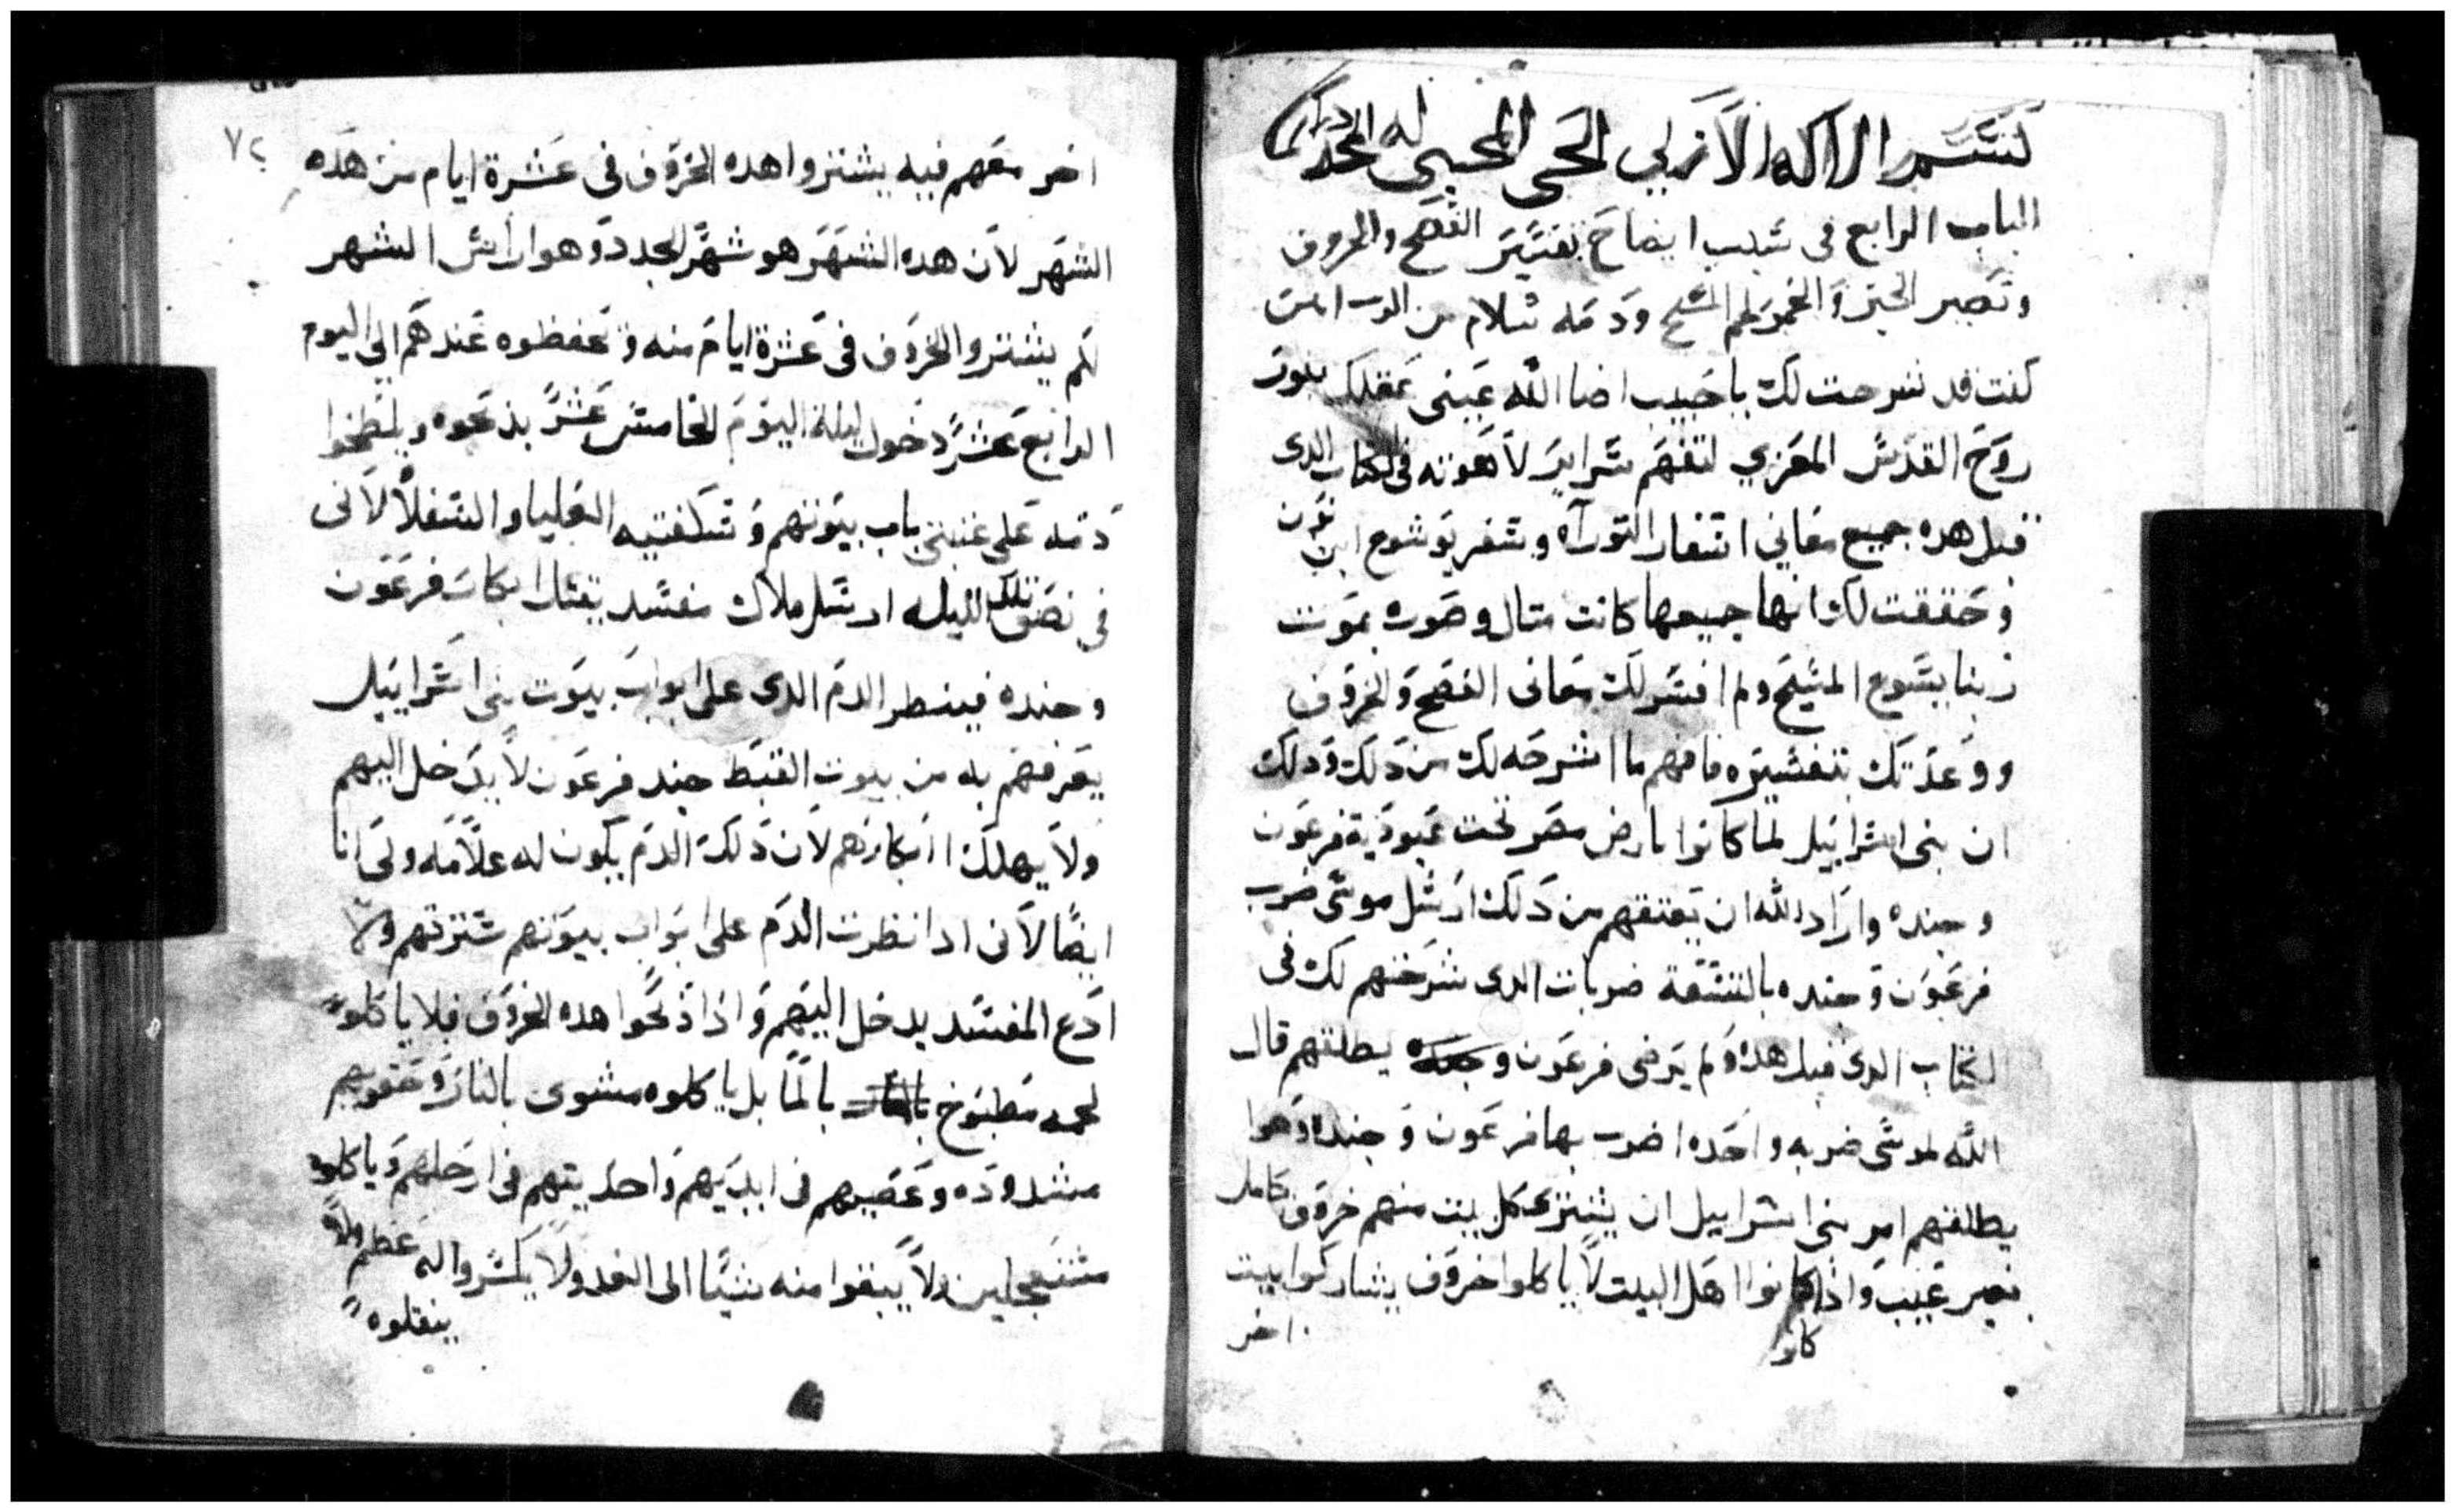 بسم الاله الازلي الحي المحيي له المجد دايما
الباب الرابع فى سبب ايضاح تفسير الفصح والخروف
وتصير الخبز والخمر لحم المسيح ودمه سلام من الرب امين
كنت قد شرحت لك يا حبيب اضا الله عينى عقلك بنور
روح القدس المعزي لتفهم سراير لاهوته فى الكتاب الدى
قبل هده جميع معاني اسفار التوراه وسفر يوشوع ابن نون
وحققت لك انها جميعها كانت متال وصوره بموت
ربنا يسوع المسيح ولم افسر لك معانى الفصح والخروف
ووعدتك بتفسيره فافهم ما اشرحه لك من دلك ودلك
ان بنى اسراييل لما كانوا بارض مصر تحت عبودية فرعون
وجنده واراد الله ان يعتقهم من دلك ارسل موسى ضرب
فرعون وجنده بالتسعة ضربات الدى شرحتهم لك فى
الكتاب الدى قبل هده ولم يرضى فرعون وجنده يطلقهم قال
الله لموسى ضربه واحده اضرب بها فرعون وجنده وهوا
يطلقهم امر بنى اسراييل ان يشترى كل بيت منهم خروف كامل
بغير عيب واذا كانوا اهل البيت لا ياكلوا خروف يشاركوا بيت
كانو
اخر
٧٢
اخر معهم فيه يشتروا هده الخروف فى عشرة ايام من هده
الشهر لان هده الشهر هو شهر الجدد وهوا راس الشهر
لهم يشتروا الخروف فى عشرة ايام منه وتحفظوه عندهم الى اليوم
الرابع عشر دخول ليلة اليوم الخامس عشر يذبحوه ويلطخوا
دمه على عتبتى باب بيوتهم وسكفتيه العليا والسفلا لانى
فى نصف تلك الليله ارسل ملاك مفسد يقتل ابكار فرعون
وجنده فينظر الدم الدى على ابواب بيوت بنى اسراييل
يعرفهم به من بيوت القبط جند فرعون لا يدخل اليهم
ولا يهلك ابكارهم لان دلك الدم يكون له علامه ولى انا
ايضا لانى ادا نظرت الدم على ابواب بيوتهم سترتهم ولا
ادع المفسد يدخل اليهم واذا ذبحوا هده الخروف فلا ياكلوا
لحمه مطبوخ بالما بل ياكلوه مشوى بالنار وحقويهم
مشدوده وعصيهم فى ايديهم واحديتهم فى ارجلهم وياكلوه
مستعجلين ولا يبقوا منه شيا الى الغد ولا يكسروا له عظم ولا
ينقلوه